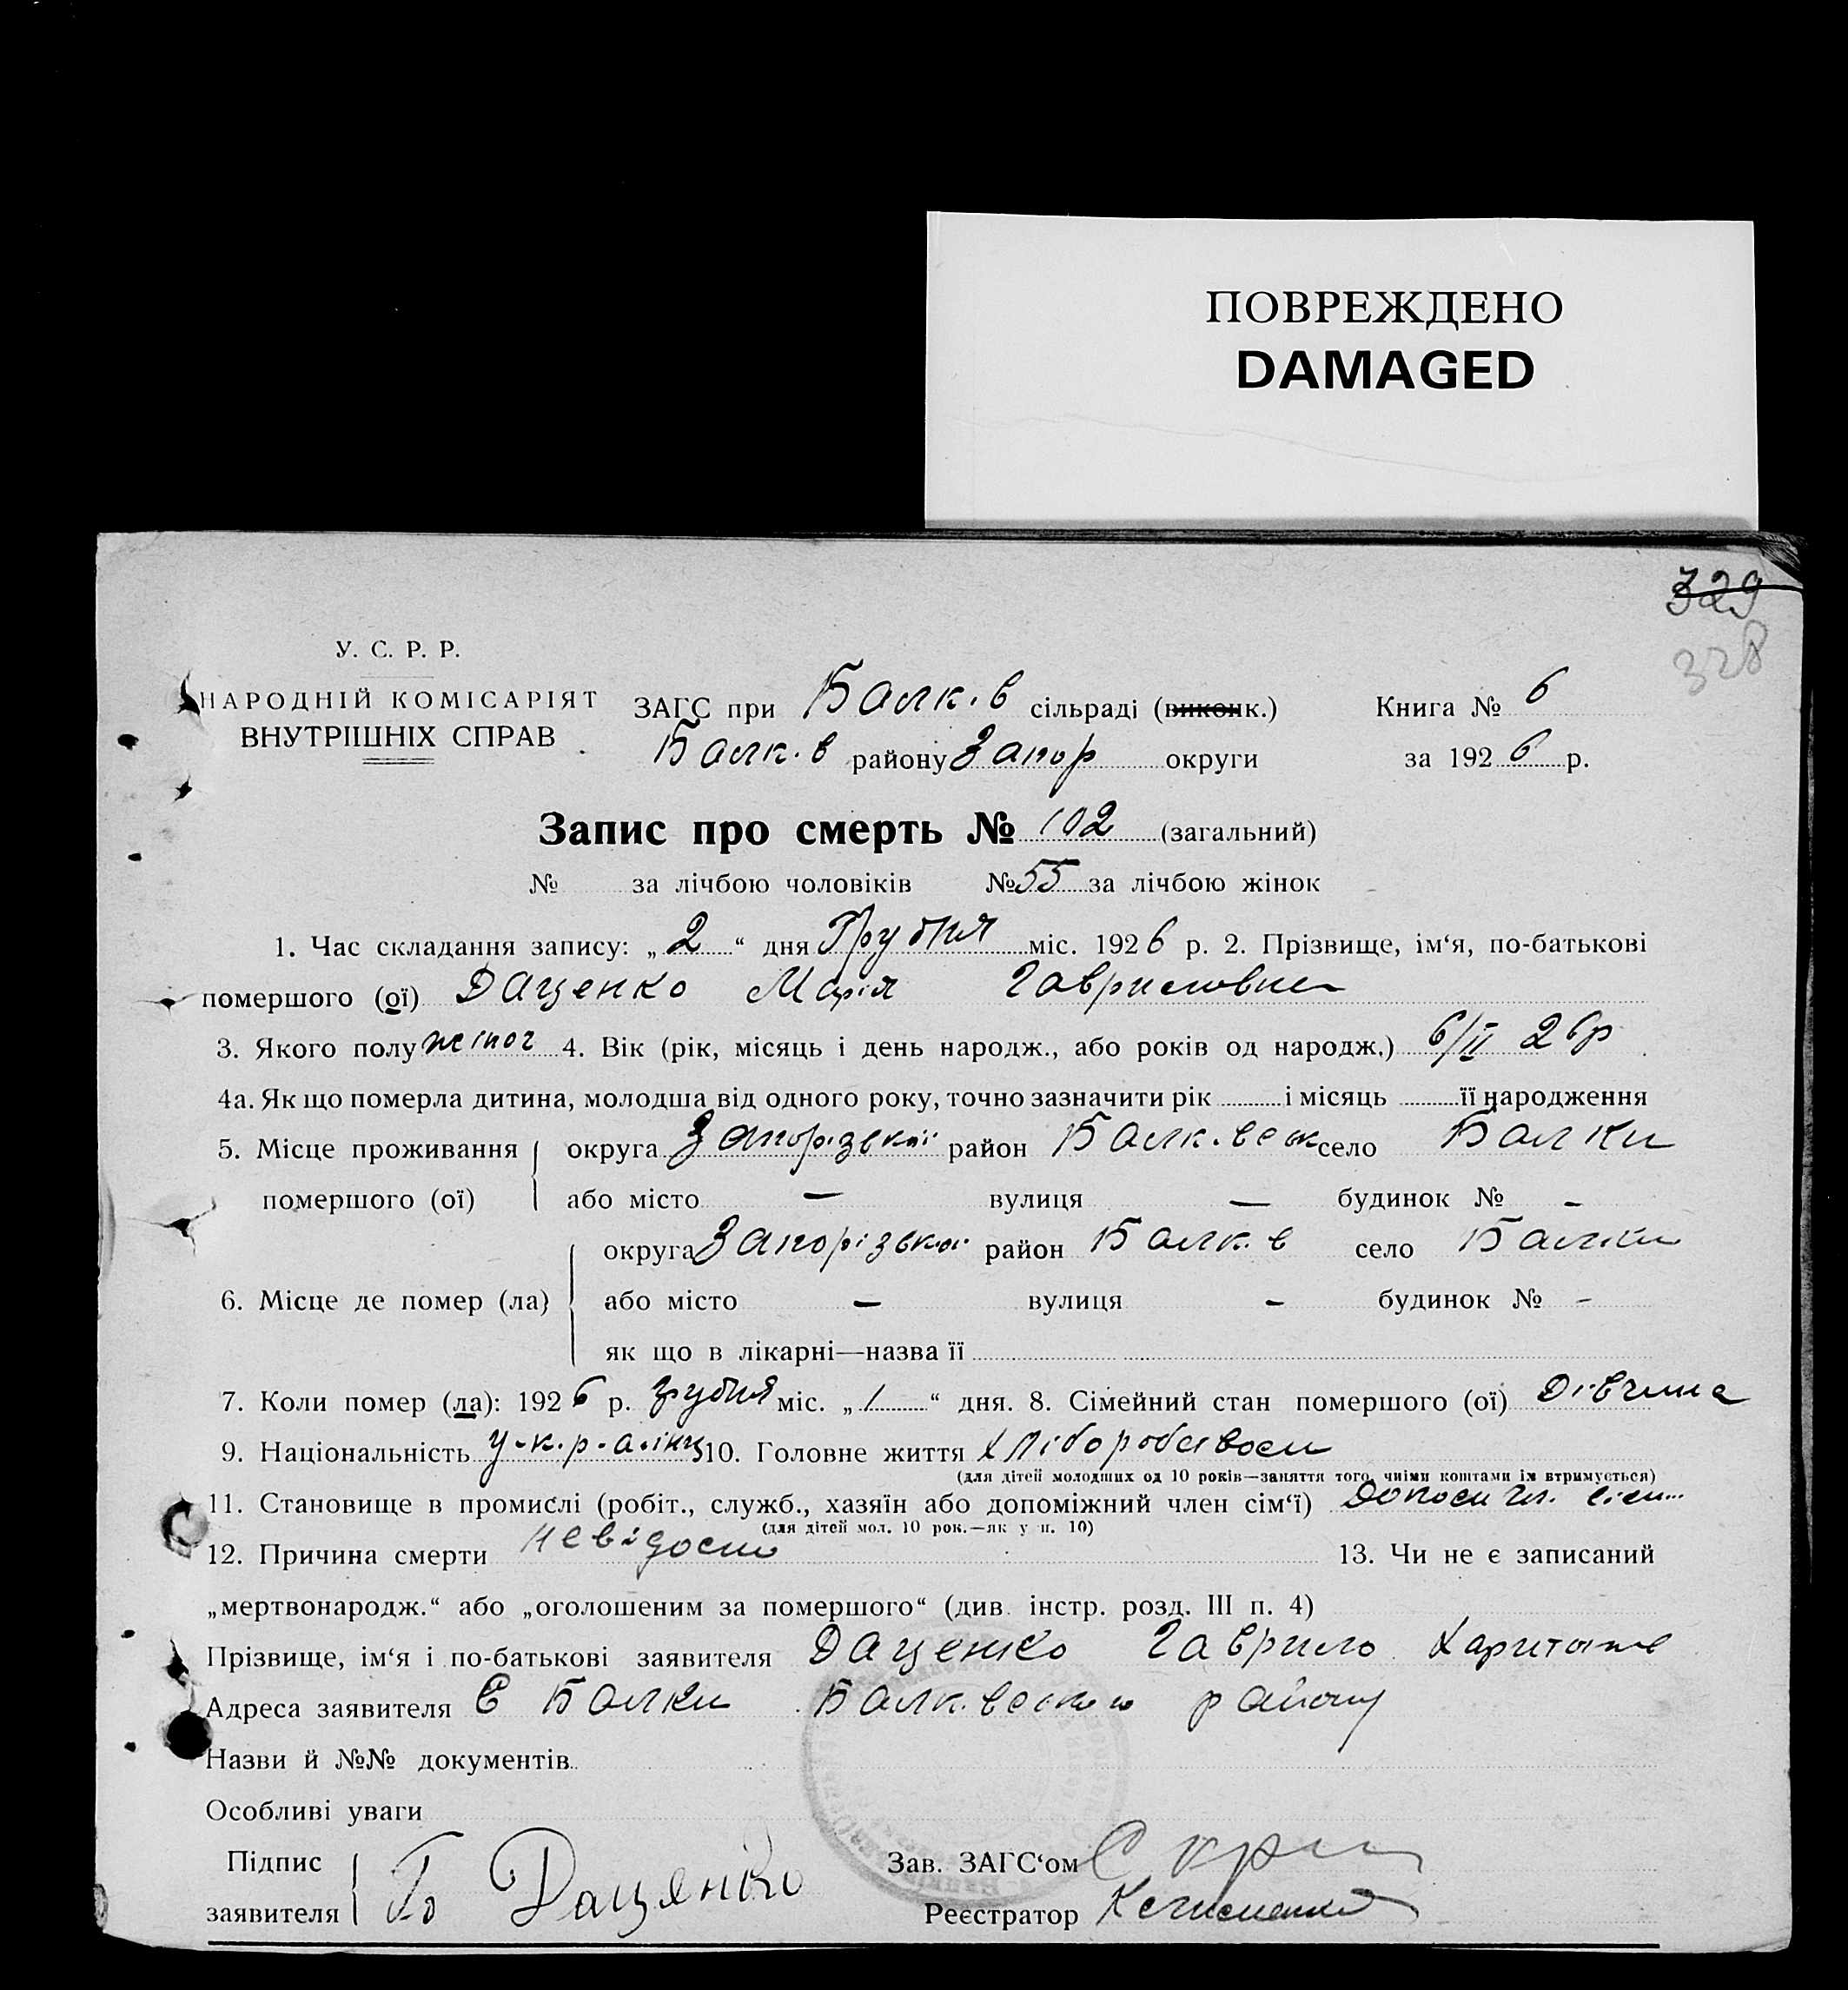 ПОВРЕЖДЕНО
DAMAGED
329
328
У. С. Р. Р.
НАРОДНІЙ КОМІСАРІЯТ
ВНУТРІШНІХ СПРАВ
ЗАГС при Балк.в сільраді (виконк.) Книга № 6
Балк.в району Запор округи за 1926 р.
Запис про смерть № 102 (загальний)
№ за лічбою чоловіків № 55 за лічбою жінок
1. Час складання запису: „2“ дня Грудня міс. 1926 р. 2. Прізвище, ім‘я, по-батькові
помершого (ої) Даценко Марія Гавриловна
3. Якого полу жіноч 4. Вік (рік, місяць і день народж., або років од народж.) 6/II 26р
4а. Як що померла дитина, молодша від одного року, точно зазначити рік і місяць її народження
5. Місце проживання округа Запорізької район Балк.вськ село Балки
помершого (ої) або місто — вулиця — будинок № -
округа Запорізької район Балк.в село Балки
6. Місце де помер (ла) або місто — вулиця - будинок № -
як що в лікарні—назва її
7. Коли помер (ла): 1926 р. грудня міс. „1“ дня. 8. Сімейний стан помершого (ої) Дівчина
9. Національність у-к.р-аінц 10. Головне життя хліборобством
(для дітей молодших од 10 років—заняття того, чиїми коштами їх втримується)
11. Становище в промислі (робіт., служб., хазяїн або допоміжний член сім‘ї) допом чл. сім...
(для дітей мол. 10 рок.—як у п. 10)
12. Причина смерти невідомо 13. Чи не є записаний
„мертвонародж.“ або „оголошеним за помершого“ (див. інстр. розд. III п. 4)
Прізвище, ім‘я і по-батькові заявителя Даценко Гаврило
Адреса заявителя С Балки Балк.вського району
Назви й №№ документів
Особливі уваги
Підпис Зав. ЗАГС‘ом
заявителя Дацянко Реєстратор